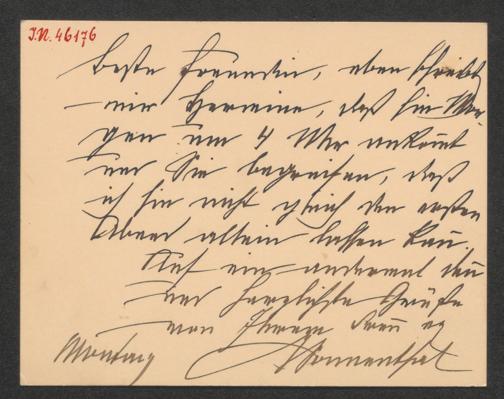 J.N. 46176
Beste Freundin, eben schreibt
mir Hermine, daß sie Mor-
gen um 4 Uhr ankomt
und Sie begreifen, daß
ich sie nicht gleich den ersten
Abend allein lassen kan.
Auf ein andermal den
und herzlichste Grüße
von Ihrem
Sonnenthal
Montag